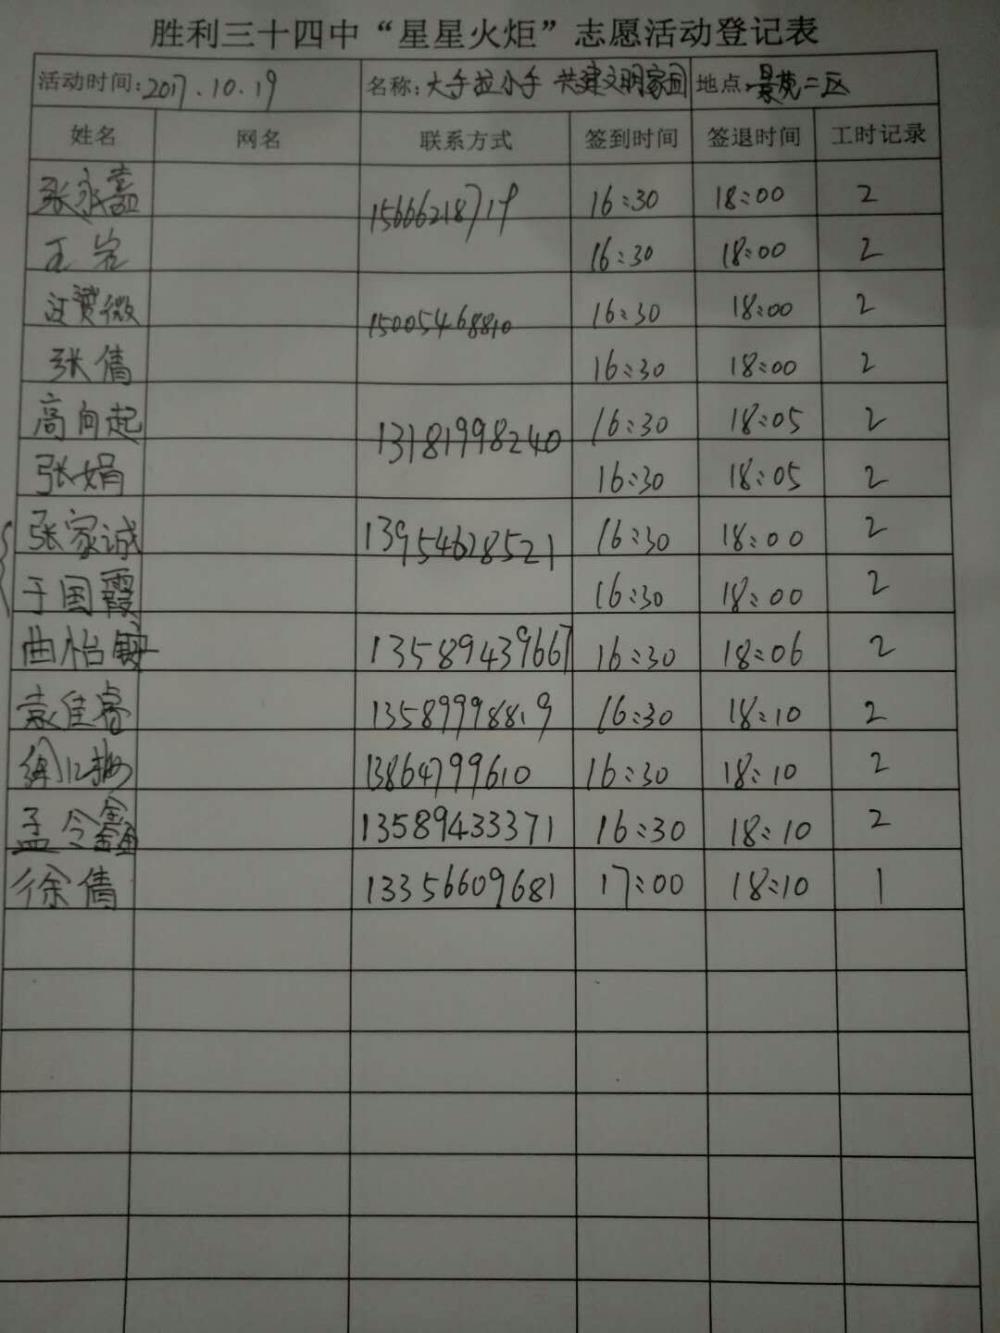 胜利三十四中“星星火炬”志愿活动登记表
活动时间:2017.10.19 名称:大手拉小手 共建文明家园 地点 景苑二区
姓名 网名 联系方式 签到时间 签退时间 工时记录
张永嘉 15666218719 16:30 18:00 2
王岩 16:30 18:00 2
微 15005468810 16:30 18:00 2
张倩 16:30 18:00 2
高向起 13181998240 16:30 18:05 2
张娟 16:30 18:05 2
张家诚 13954628521 16:30 18:00 2
于国霞 16:30 18:00 2
曲怡 13589439667 16:30 18:06 2
袁佳睿 13589998819 16:30 18:10 2
13864799610 16:30 18:10 2
孟令鑫 13589433371 16:30 18:10 2
徐倩 13356609681 17:00 18:10 1